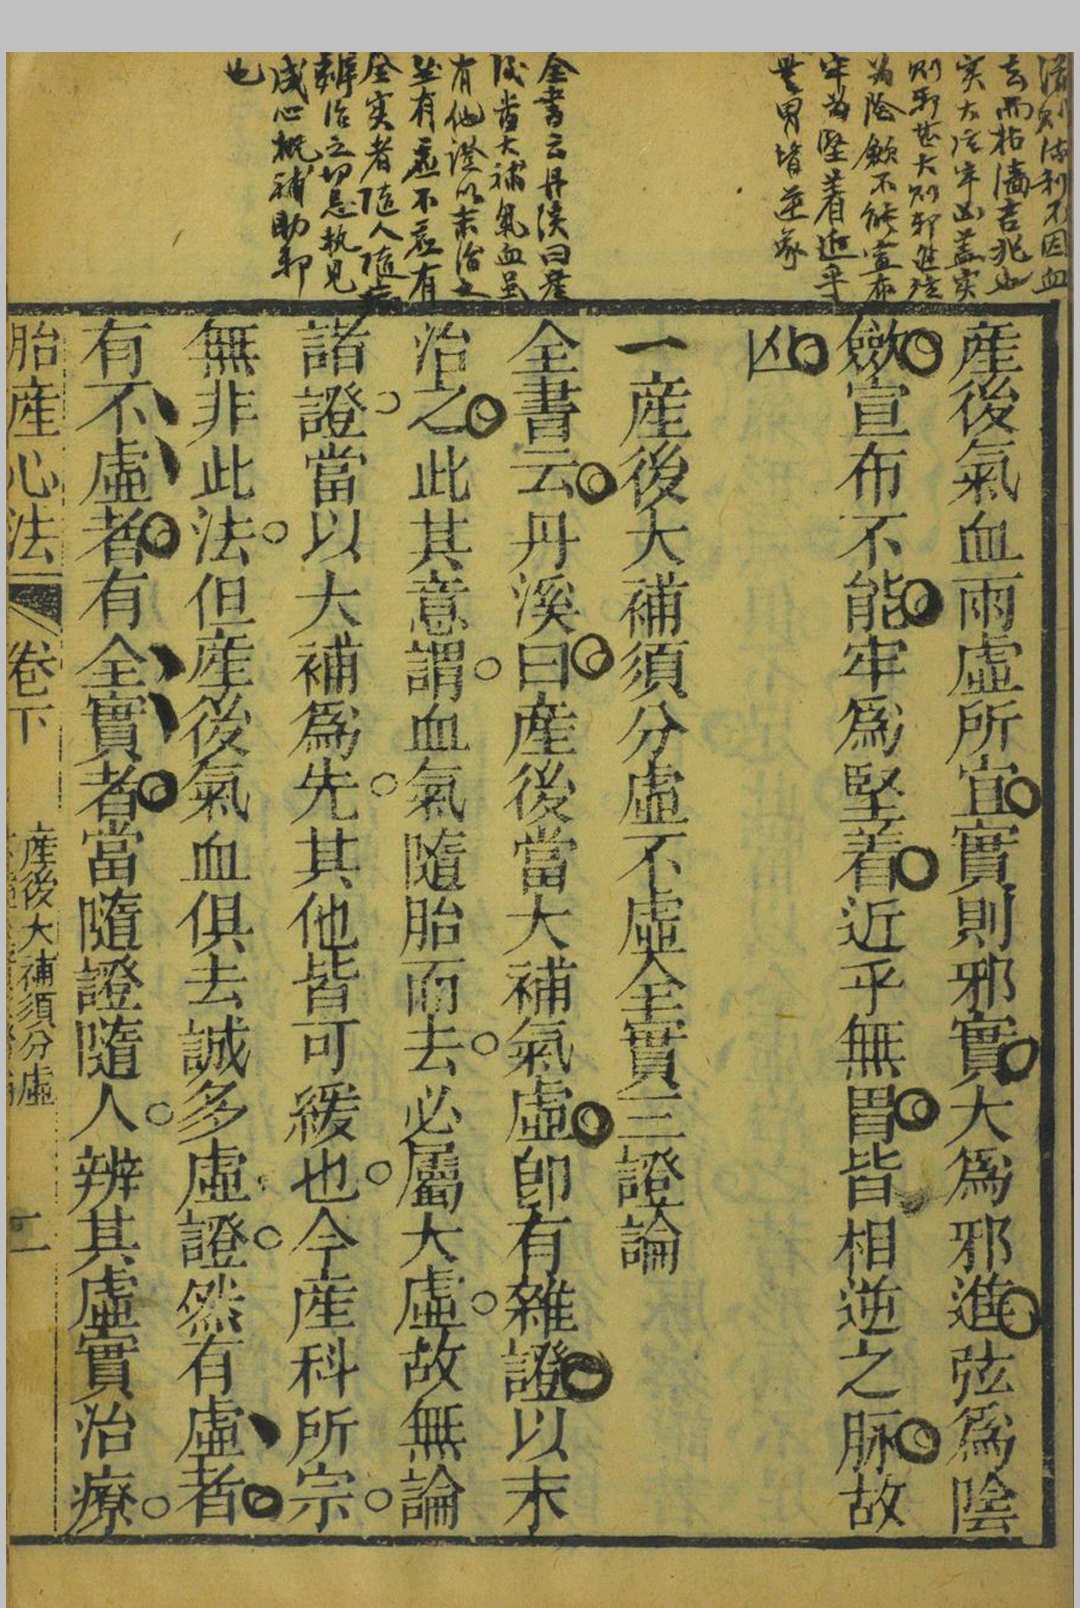 去而枯濇吉兆也
實大弦牢凶蓋實
則邪甚大則邪進弦
為陰斂不能宣布
牢為堅着近乎
無胃皆逆象
全書云丹溪曰產
後當大補氣血虽
有他證以末治之
然有虛不虛有
全實者隨人隨
辨治之切忌執見
成心概補助邪
也
產後氣血兩虛所宜實則邪實大爲邪進弦爲陰
斂宣布不能牢爲堅着近乎無胃皆相逆之脉故
凶
一產後大補須分虛不虛全實三證論
全書云丹溪曰產後當大補氣虛卽有雜證以末
治之此其意謂血氣隨胎而去必屬大虛故無論
諸證當以大補爲先其他皆可緩也今產科所宗
無非此法但產後氣血俱去誠多虛證然有虛者
有不虛者有全實者當隨證隨人辨其虛實治療
胎產心法 卷下 產後大補須分虛 二